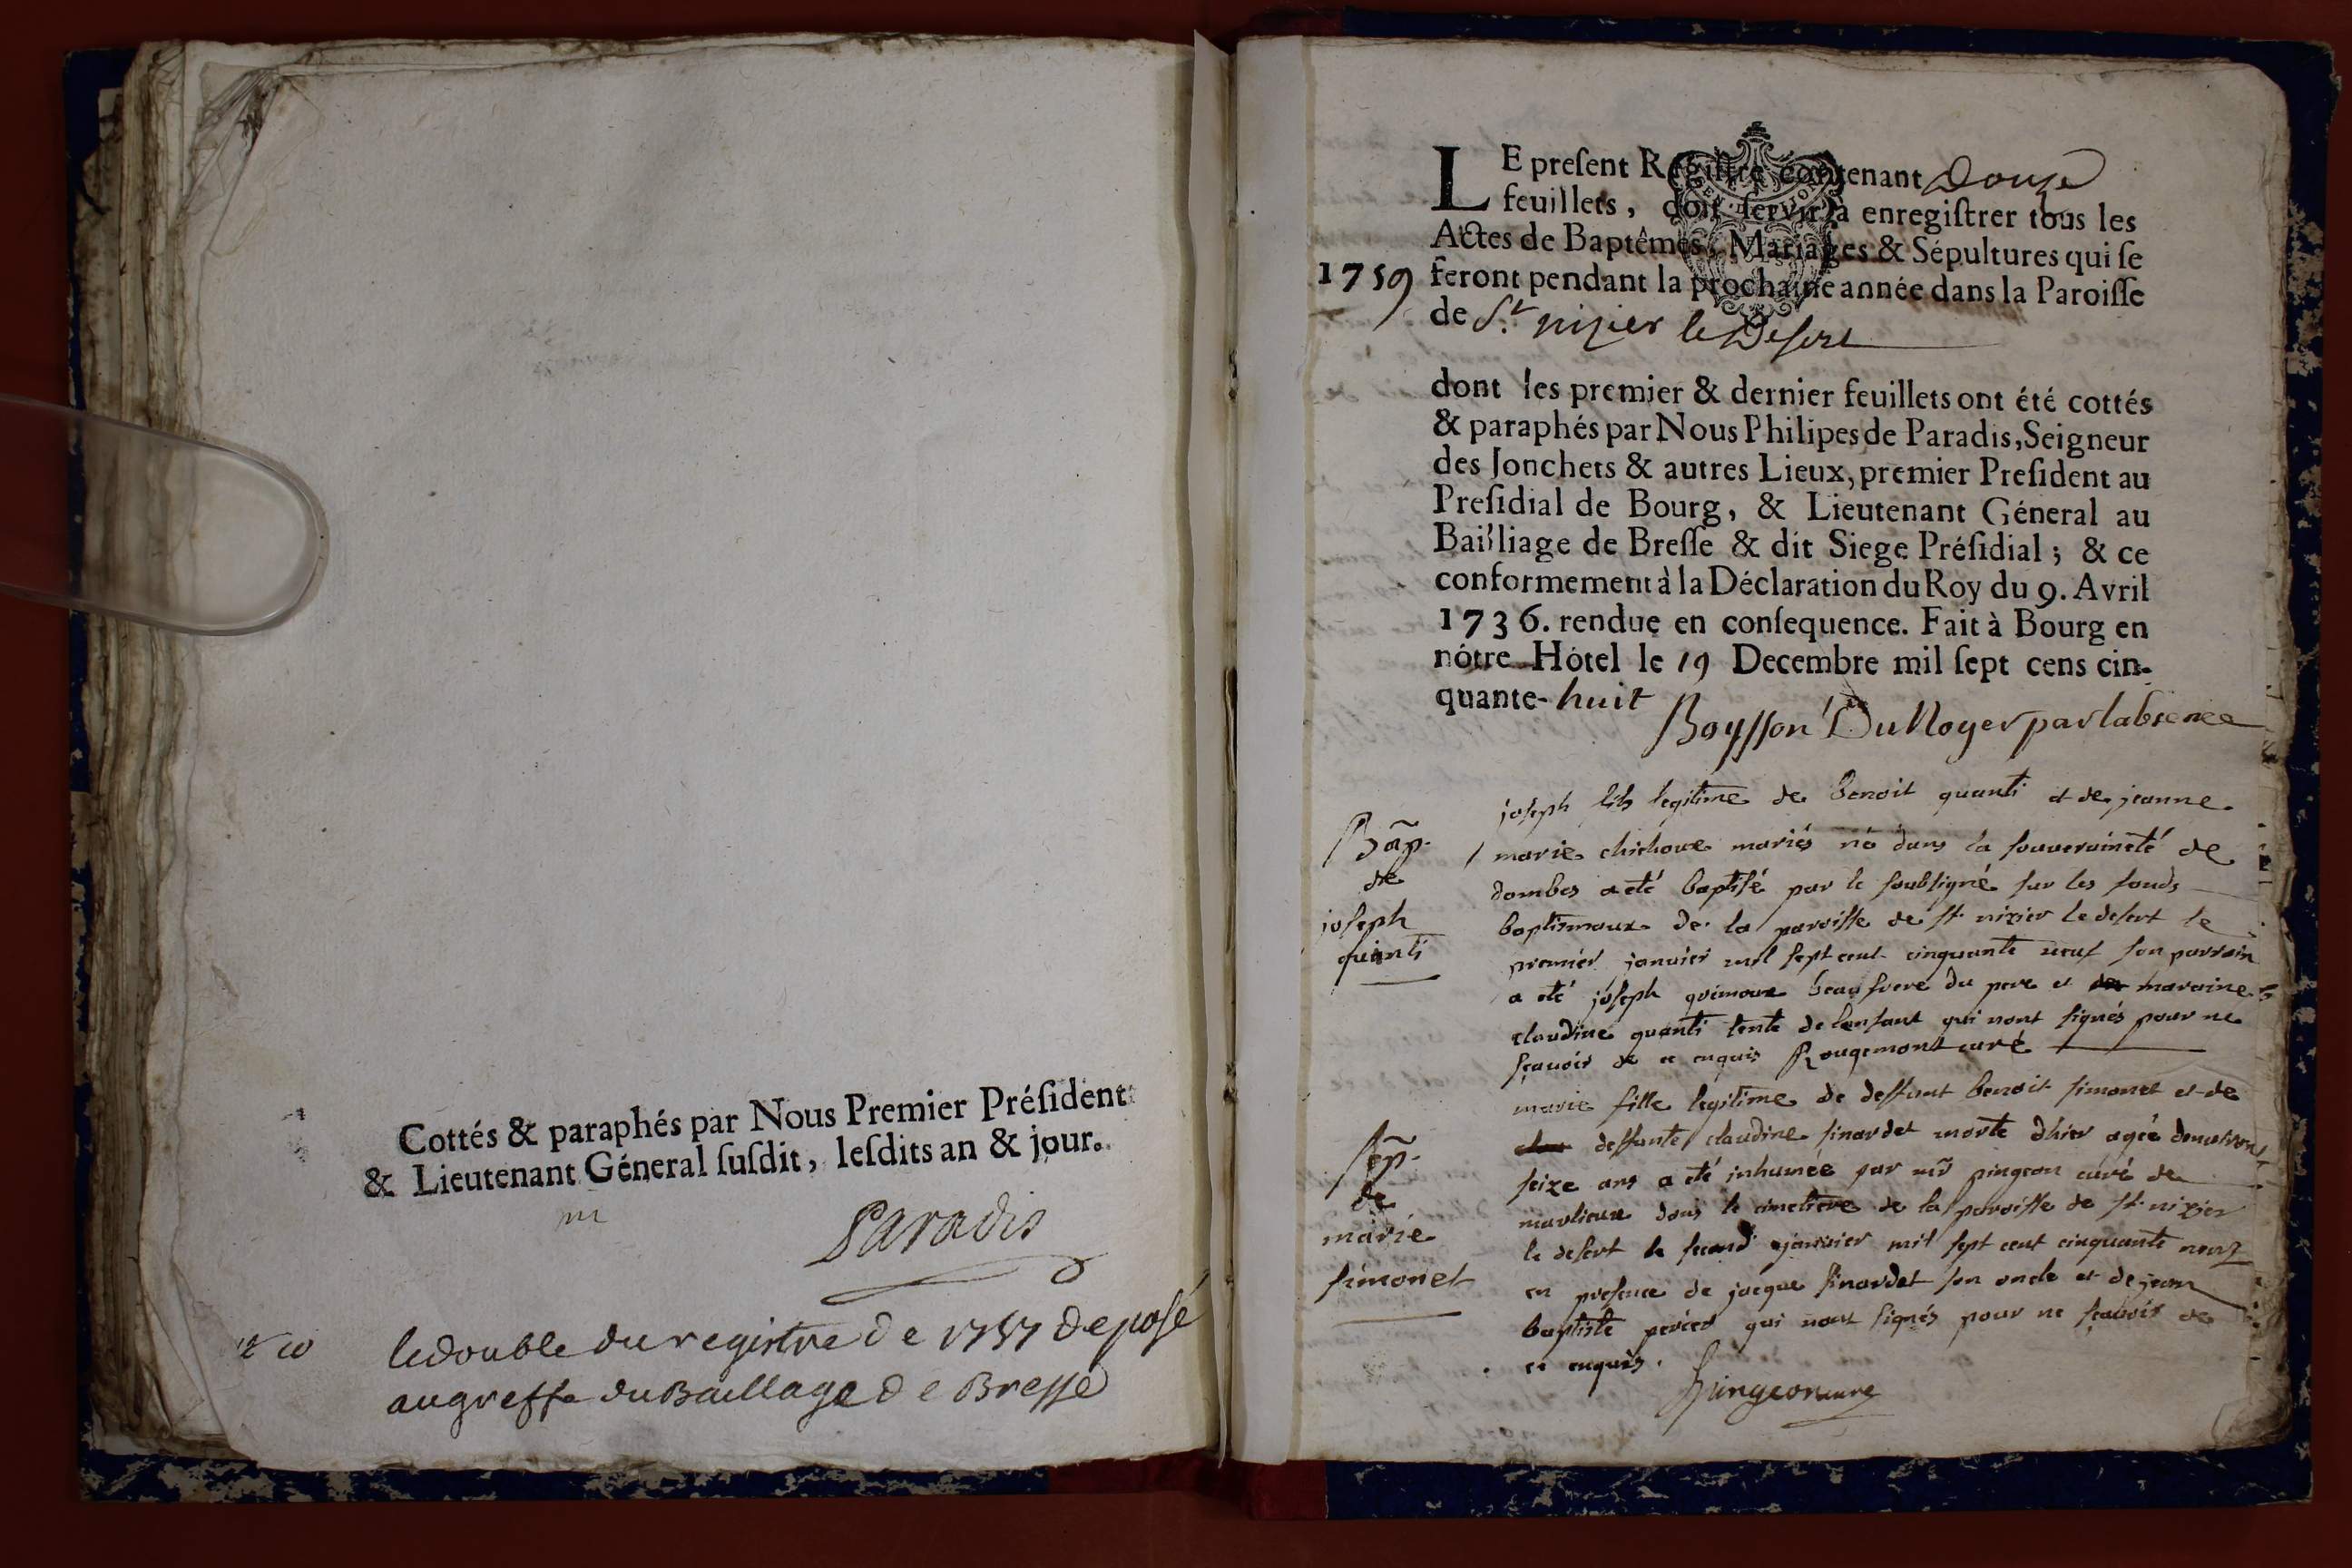 Cottés & paraphés par Nous Premier Préſident
& Lieutenant Géneral ſuſdit, leſdits an & jour.
Paradis
le double du registre de 1757 deposé
au greffe du Baillage de Bresse
LE preſent Regiſtre contenant Douze
feuillets, doit ſervir à enregiſtrer tous les
Actes de Baptêmes, Mariages & Sépultures qui ſe
1759 feront pendant la prochaine année dans la Paroiſſe
de St. nizier le Desert
dont les premier & dernier feuillets ont été cottés
& paraphés par Nous Philipes de Paradis, Seigneur
des Jonchets & autres Lieux, premier Preſident au
Preſidial de Bourg, & Lieutenant Géneral au
Bailliage de Breſſe & dit Siege Préſidial; & ce
conformement à la Déclaration du Roy du 9. Avril
1736. rendue en conſequence. Fait à Bourg en
nótre Hótel le 19 Decembre mil ſept cens cin-
quante-huit
Boysson Dunoyer par labsence
Bãp.
de
joseph
quanti
joseph fils legitime de benoit quanti et de jeanne
marie chichoux mariés né dans la souveraineté de
dombes a eté baptisé par le soubsigné sur les fonds
baptismaux de la paroisse de st nizier le desert le
premier janvier mil sept cent cinquante neuf son parrain
a eté joseph guimoux beaufrere du pere et maraine
claudine quanti tente de lenfant qui nont signés pour ne
sçavoir de ce enquis Rougemont curé
Sep̃.
de
marie
simonet
marie fille legitime de deffunt benoit simonet et de
deffunte claudine sinardet morte dhier agée denviron
seize ans a eté inhumée par mr̃ pingeon curé de
marlieux dans le cimetiere de la paroisse de st nizier
le desert le second janvier mil sept cent cinquante neuf
en presence de jacque sinardet son oncle et de jean
baptiste perier qui nont signés pour ne sçavoir de
ce enquis.
Pingeon curé